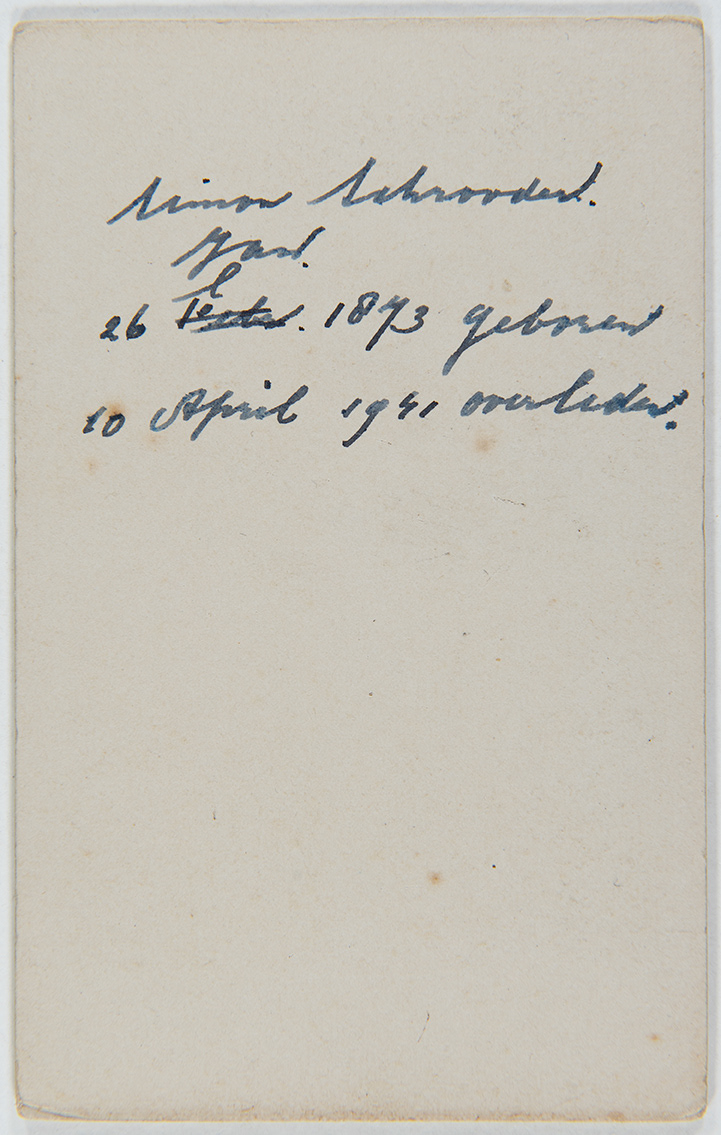 Simon Schrooder.
Jan.
26 1873 geboren
10 April 1941 overleden.